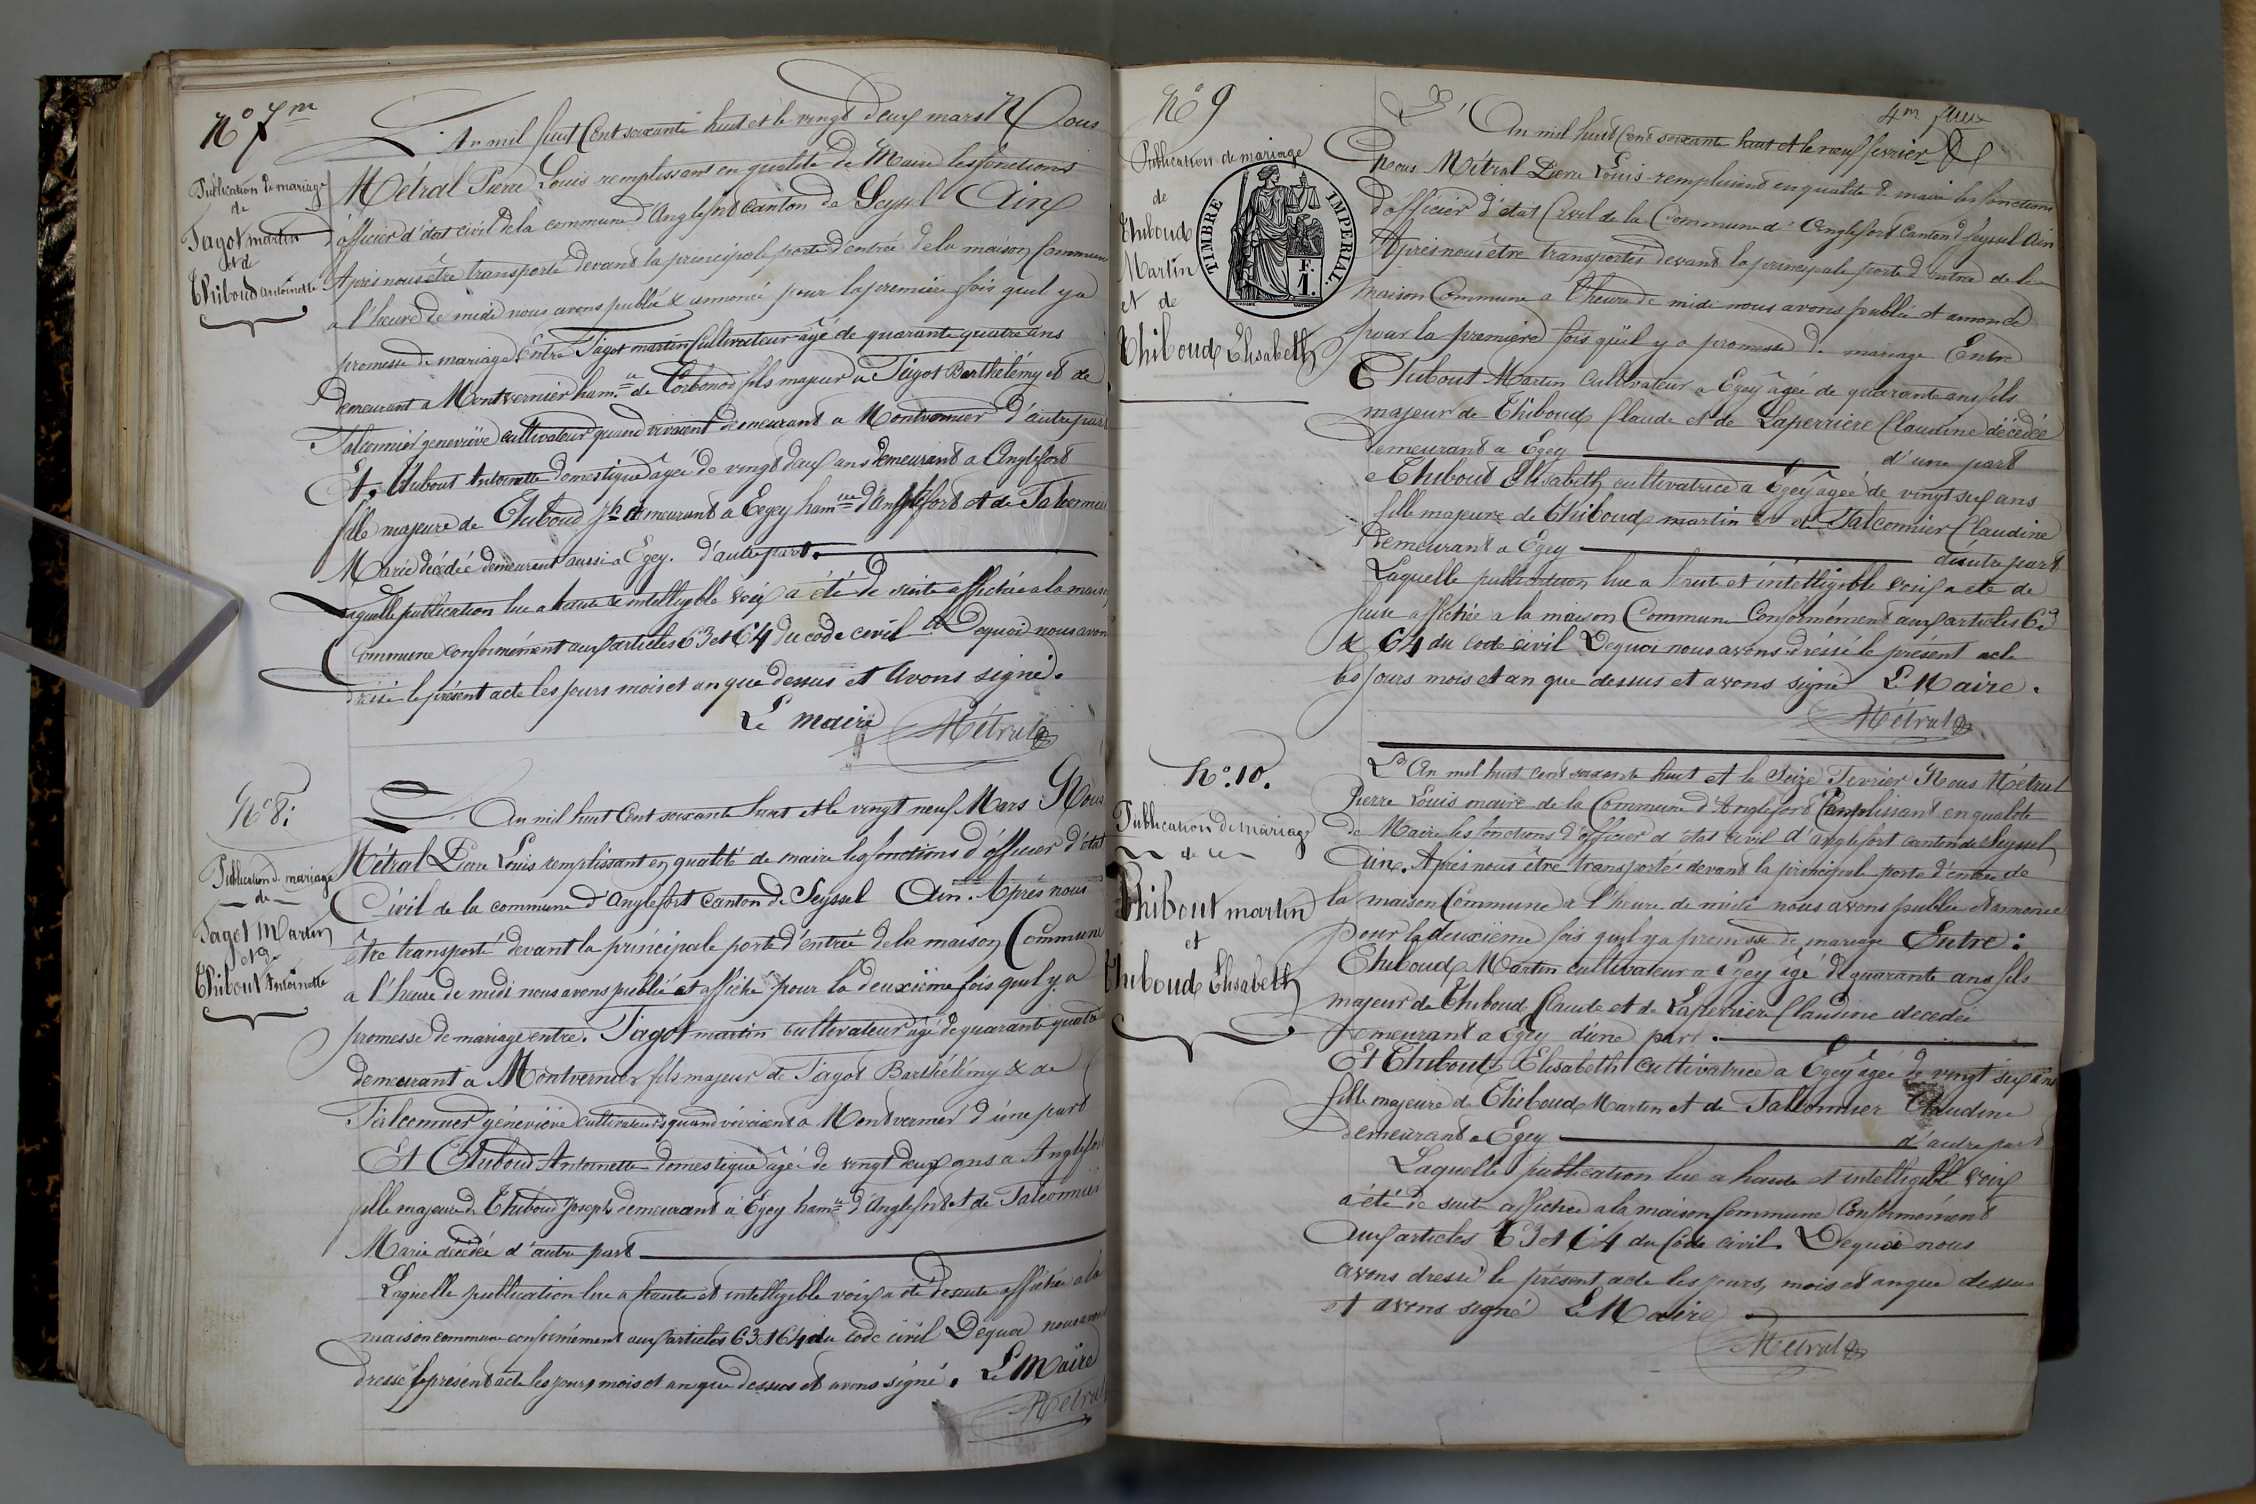 N° 7m
Publication de mariage
de
Tagot martin
et de
Thiboud antoinette
L'An mil huit Cent soixante huit et le vingt deux mars Nous
Métral Pierre Louis remplissant en qualité de Maire les fonctions
d'officier d'état civil de la commune d'Anglefort Canton de Seyssel Ain
Après nous être transporté devant la principale porte d'entrée de la maison Commune
a l'heure de midi nous avons publié & annoncé pour la première fois qu'il y a
promesse de mariage Entre Tagot martin Cultivateur âgé de quarante quatre ans
Demeurant a Montvernier ham.au de Corbonod fils majeur de Tagot Barthélémy et de
Falconnier geneviève cultivateur quand vivaient demeurant a Montvernier d'autre part
Et. Thibout Antoinette Domestique âgée de vingt deux ans Demeurant a Anglefort
fille majeure de Thiboud Jh demeurant a Egey ham d'Anglefort et de Falconnier
Marie décédée demeurant aussi a Egey. d'autre part.
Laquelle publication lue a haute & intelligible voix a été de suite affichée a la maison
Commune conformément aux articles 63 et 64 du code civil Dequoi nous avons
dressé le présent acte les jours mois et an que dessus et avons signé.
Le maire Métral
N° 8.
Publication de mariage
de
Tagot Martin
et de
Thibout Antoinette
L'An mil huit Cent soixante huit et le vingt neuf Mars Nous
Métral Pierre Louis remplissant en qualité de maire les fonctions d'officier d'état
Civil de la commune d'Anglefort Canton de Seyssel Ain. Après nous
être transporté devant la principale porte d'entrée de la maison Commune
a l'heure de midi nous avons publié et affiché pour la deuxième fois qu'il y a
promesse de mariage entre. Tagot martin cultivateur âgé de quarante quatre
demeurant a Montvernier fils majeur de Tagot Barthélémy & de
Falconnier géneviève cultivateurs quand vivaient a Montvernier d'une part
Et Thiboud Antoinette domestique âgée de vingt deux ans a Anglefort
fille majeure de Thiboud Joseph demeurant a Egey ham d'Anglefort et de Falconnier
Marie décédée d'autre part
Laquelle publication lue a haute et intelligible voix a été de suite affichée a la
maison commune conformément aux articles 63 et 64 du code civil Dequoi nous avons
dressé le présent acte les jours mois et an que dessus et avons signé. Le Maire
Métral
4m
N° 9
Publication de mariage
de
Thiboud
Martin
et de
Thiboud Elisabeth
TIMBRE IMPERIAL
F.
1.
L'An mil huit Cent soixante huit et le neuf fevrier
Nous Métral Pierre Louis remplissant en qualité de maire les fonctions
d'officier d'état Civil de la Commune d'Anglefort Canton de Seyssel Ain
Après nous être transportés devant la principale porte d'entrée de la
maison Commune a l'heure de midi nous avons publié et annoncé
pour la première fois qu'il y a promesse de mariage Entre
Thibout Martin Cultivateur a Egey âgée de quarante ans fils
majeur de Thiboud Claude et de Laperrière Claudine décédée
demeurant a Egey d'une part
et Thiboud Elisabeth cultivatrice a Egey âgée de vingt six ans
fille majeure de Thiboud martin et de Falconnier Claudine
Demeurant a Egey d'autre part
Laquelle publication lue a haute et intelligible voix a été de
suite affichée a la maison Commune Conformément aux articles 63
& 64 du code civil Dequoi nous avons dressé le présent acte
les jours mois et an que dessus et avons signé Le Maire.
Métral
N°. 10.
Publication de mariage
de
Thibout martin
et
Thiboud Elisabeth
L'An mil huit cent soixante huit et le Seize Fevrier Nous Métral
Pierre Louis maire de la Commune d'Anglefort Remplissant en qualité
de Maire les fonctions d'officier d'état civil d'anglefort canton de Seyssel
Ain. Après nous être transportés devant la principale porte d'entrée de
la maison Commune a l'heure de midi nous avons publié et annoncé
pour la deuxième fois qu'il y a promesse de mariage Entre:
Thiboud Martin cultivateur a Egey âgé de quarante ans fils
majeur de Thiboud Claude et de Laperrière Claudine decedée
Demeurant a Egey d'une part.
Et Thibout Elisabeth Cultivatrice a Egey âgée de vingt six ans
fille majeure de Thiboud Martin et de Falconnier Claudine
demeurant a Egey d'autre part
Laquelle publication lue a haute et intelligible voix
a été de suite affichée a la maison Commune Conformément
aux articles 63 et 64 du Code civil. Dequoi nous
avons dressé le présent acte les jours, mois et an que dessus
et avons signé Le Maire
Métral